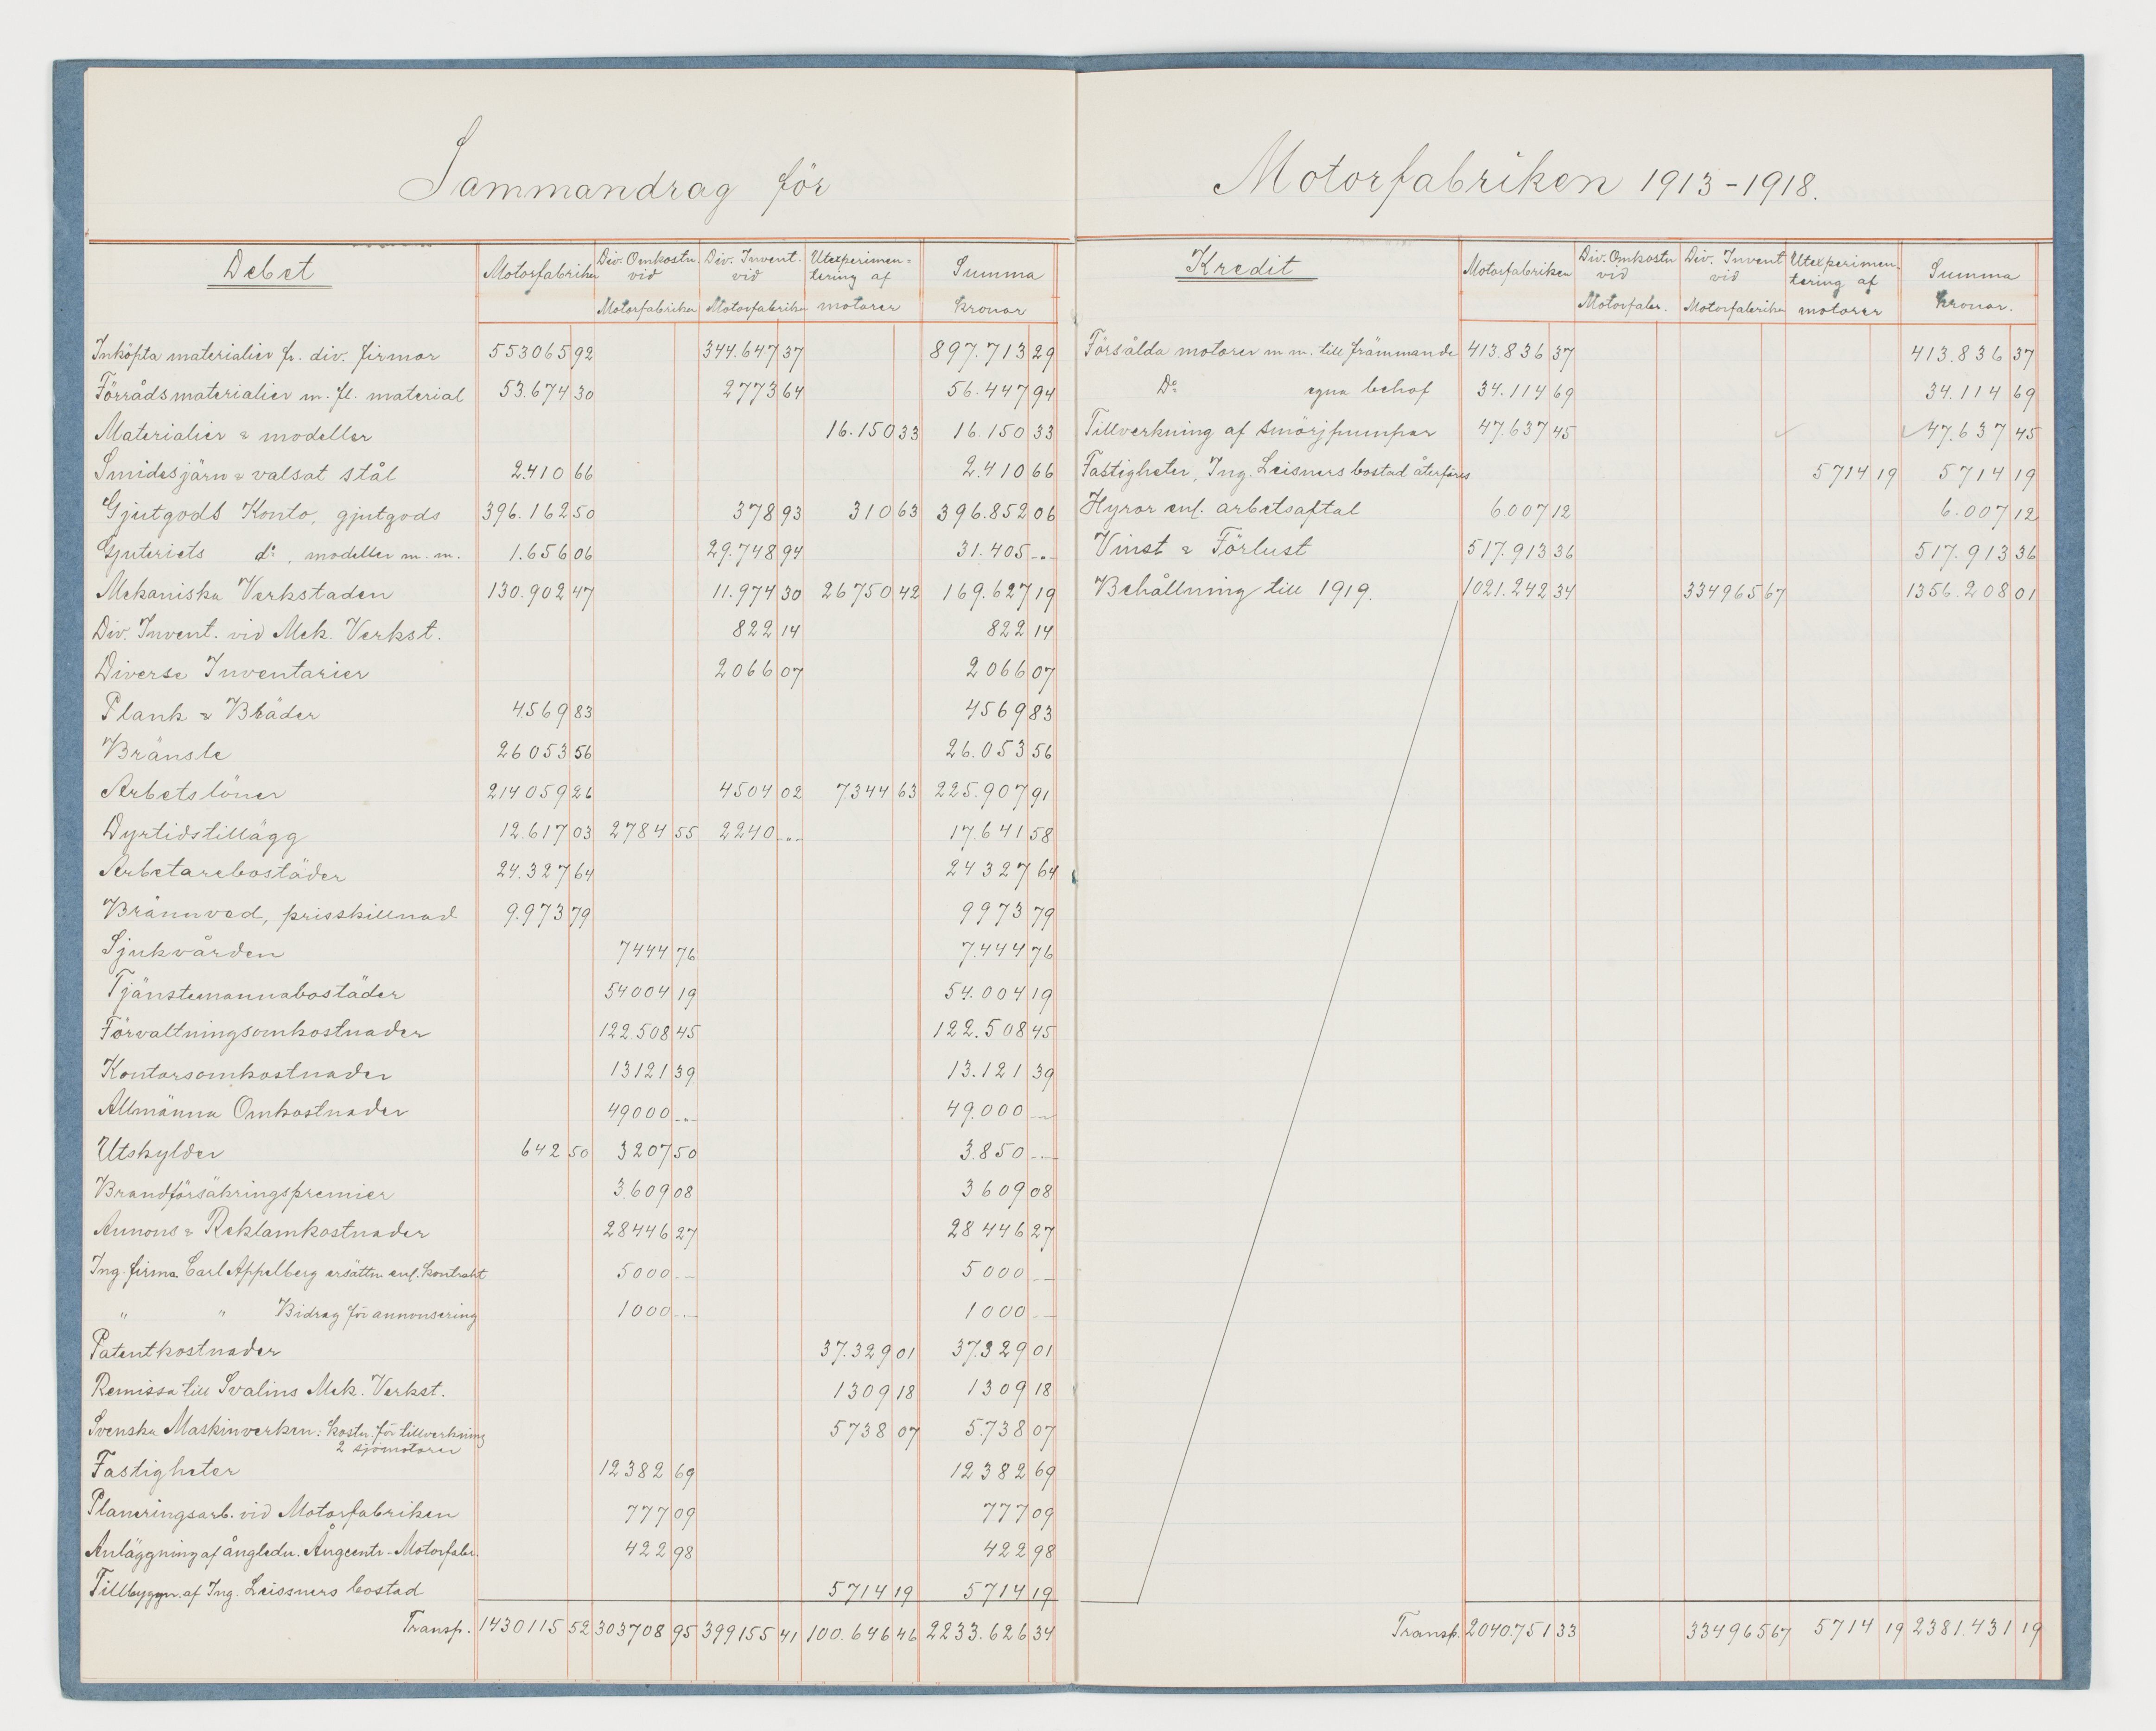 Sammandrag för Motorfabriken 1913-1918.
Debet Motorfabriken Div. Omkostn. vid Motorfabriken Div. Invent. vid Motorfabriken Utexperimentering af motorer Summa kronor
Inköpta materialier fr. div. firmor 553065 92 344.647 37 897.713 29
Förrådsmaterialier m. fl. material 53.674 30 2773 64 56.447 94
Materialier & modeller 16.150 33 16.150 33
Smidesjärn & valsat stål 2.410 66 2.410 66
Gjutgods Konto, gjutgods 396.162 50 378 93 310 63 396.852 06
Gjuteriets do, modeller m. m. 1.656 06 29.748 94 31.405 -..-
Mekaniska Verkstaden 130.902 47 11.974 30 26750 42 169.627 19
Div. Invent. vid Mek. Verkst. 822 14 822 14
Diverse Inventarier 2066 07 2066 07
Plank & Bräder 4569 83 4569 83
Bränsle 26053 56 26.053 56
Arbetslöner 214059 26 4504 02 7344 63 225.907 91
Dyrtidstillägg 12.617 03 2784 55 2240 -..- 17.641 58
Arbetarebostäder 24.327 64 24327 64
Brännved, prisskillnad 9.973 79 9973 79
Sjukvården 7444 76 7.444 76
Tjänstemannabostäder 54004 19 54.004 19
Förvaltningsomkostnader 122.508 45 122.508 45
Kontorsomkostnader 13121 39 13.121 39
Allmänna Omkostnader 49000 -..- 49.000 -..-
Utskylder 642 50 3207 50 3.850 -..-
Brandförsäkringspremier 3.609 08 3609 08
Annons & Reklamkostnader 28446 27 28446 27
Ing. firma Carl Appelberg ersättn. enl. kontrakt 5000 -..- 5000 -..-
" " Bidrag för annonsering 1000 -..- 1000 -..-
Patentkostnader 37.329 01 37.329 01
Remissa till Svalins Mek. Verkst. 1309 18 1309 18
Svenska Maskinverken: kostn. för tillverkning 5738 07 5.738 07
2 sjömotorer
Fastigheter 12382 69 12382 69
Planeringsarb. vid Motorfabriken 777 09 777 09
Anläggning af ångledn. Ångcentr.-Motorfabr. 422 98 422 98
Tillbyggn. af Ing. Leissners bostad 5714 19 5714 19
Transp. 1430115 52 303708 95 399155 41 100.646 46 2233.626 34
Kredit Motorfabriken Div. Omkostn vid Motorfabr. Div. Invent vid Motorfabriken Utexperimentering af motorer Summa kronor.
Försålda motorer m m. till främmande 413.836 37 413.836 37
Do egna behof 34.114 69 34.114 69
Tillverkning af smörjpumpar 47.637 45 47.637 45
Fastigheter, Ing. Leisners bostad återföres 5714 19 5714 19
Hyror enl. arbetsaftal 6.007 12 6.007 12
Vinst & Förlust 517.913 36 517.913 36
Behållning till 1919. 1021.242 34 334965 67 1356.208 01
Transp. 2040.751 33 334965 67 5714 19 2381.431 19